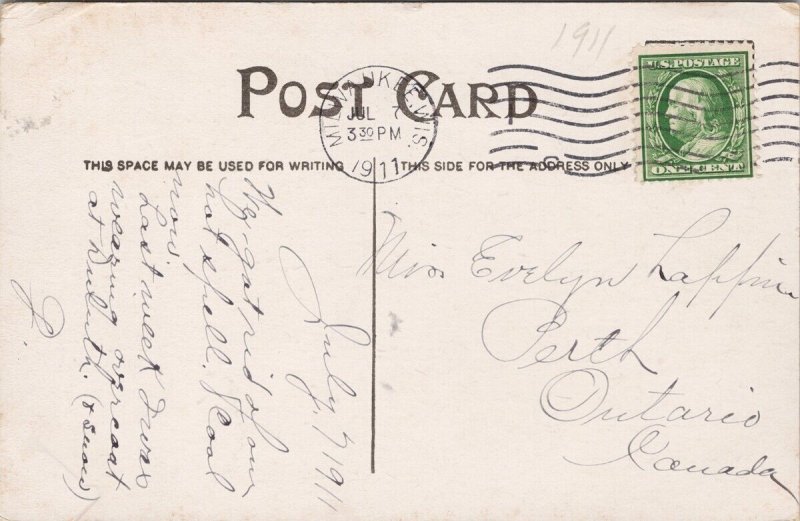 1911
POST CARD
MILWAUKEE, WIS.
JUL 7
3 30 PM
1911
U.S. POSTAGE
ONE CENT
THIS SPACE MAY BE USED FOR WRITING
THIS SIDE FOR THE ADDRESS ONLY
July, 7 1911
We got rid of our
hot spell. Cool
now.
Last week I was
wearing overcoat
at Duluth. (& snow)
L.
Miss Evelyn Lappin
Perth
Ontario
Canada